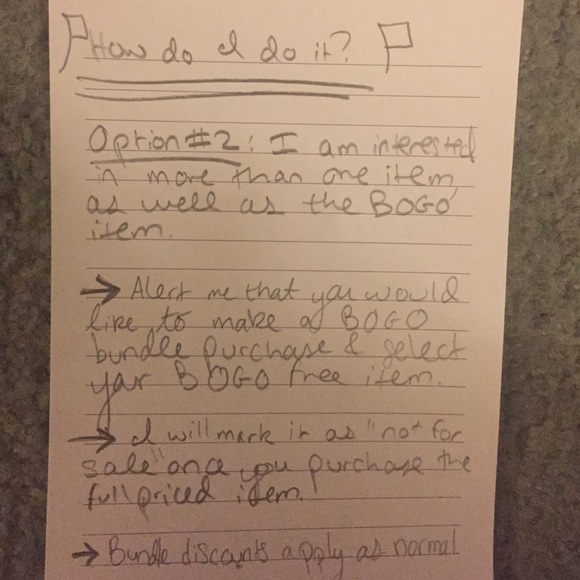 How do I do it?
Option #2: I am interested
in more than one item,
as well as the BOGO
item.
→ Alert me that you would
like to make a BOGO
bundle purchase & select
your BOGO free item.
→ I will mark it as "not for
sale" once you purchase the
full priced item.
→ Bundle discounts apply as normal